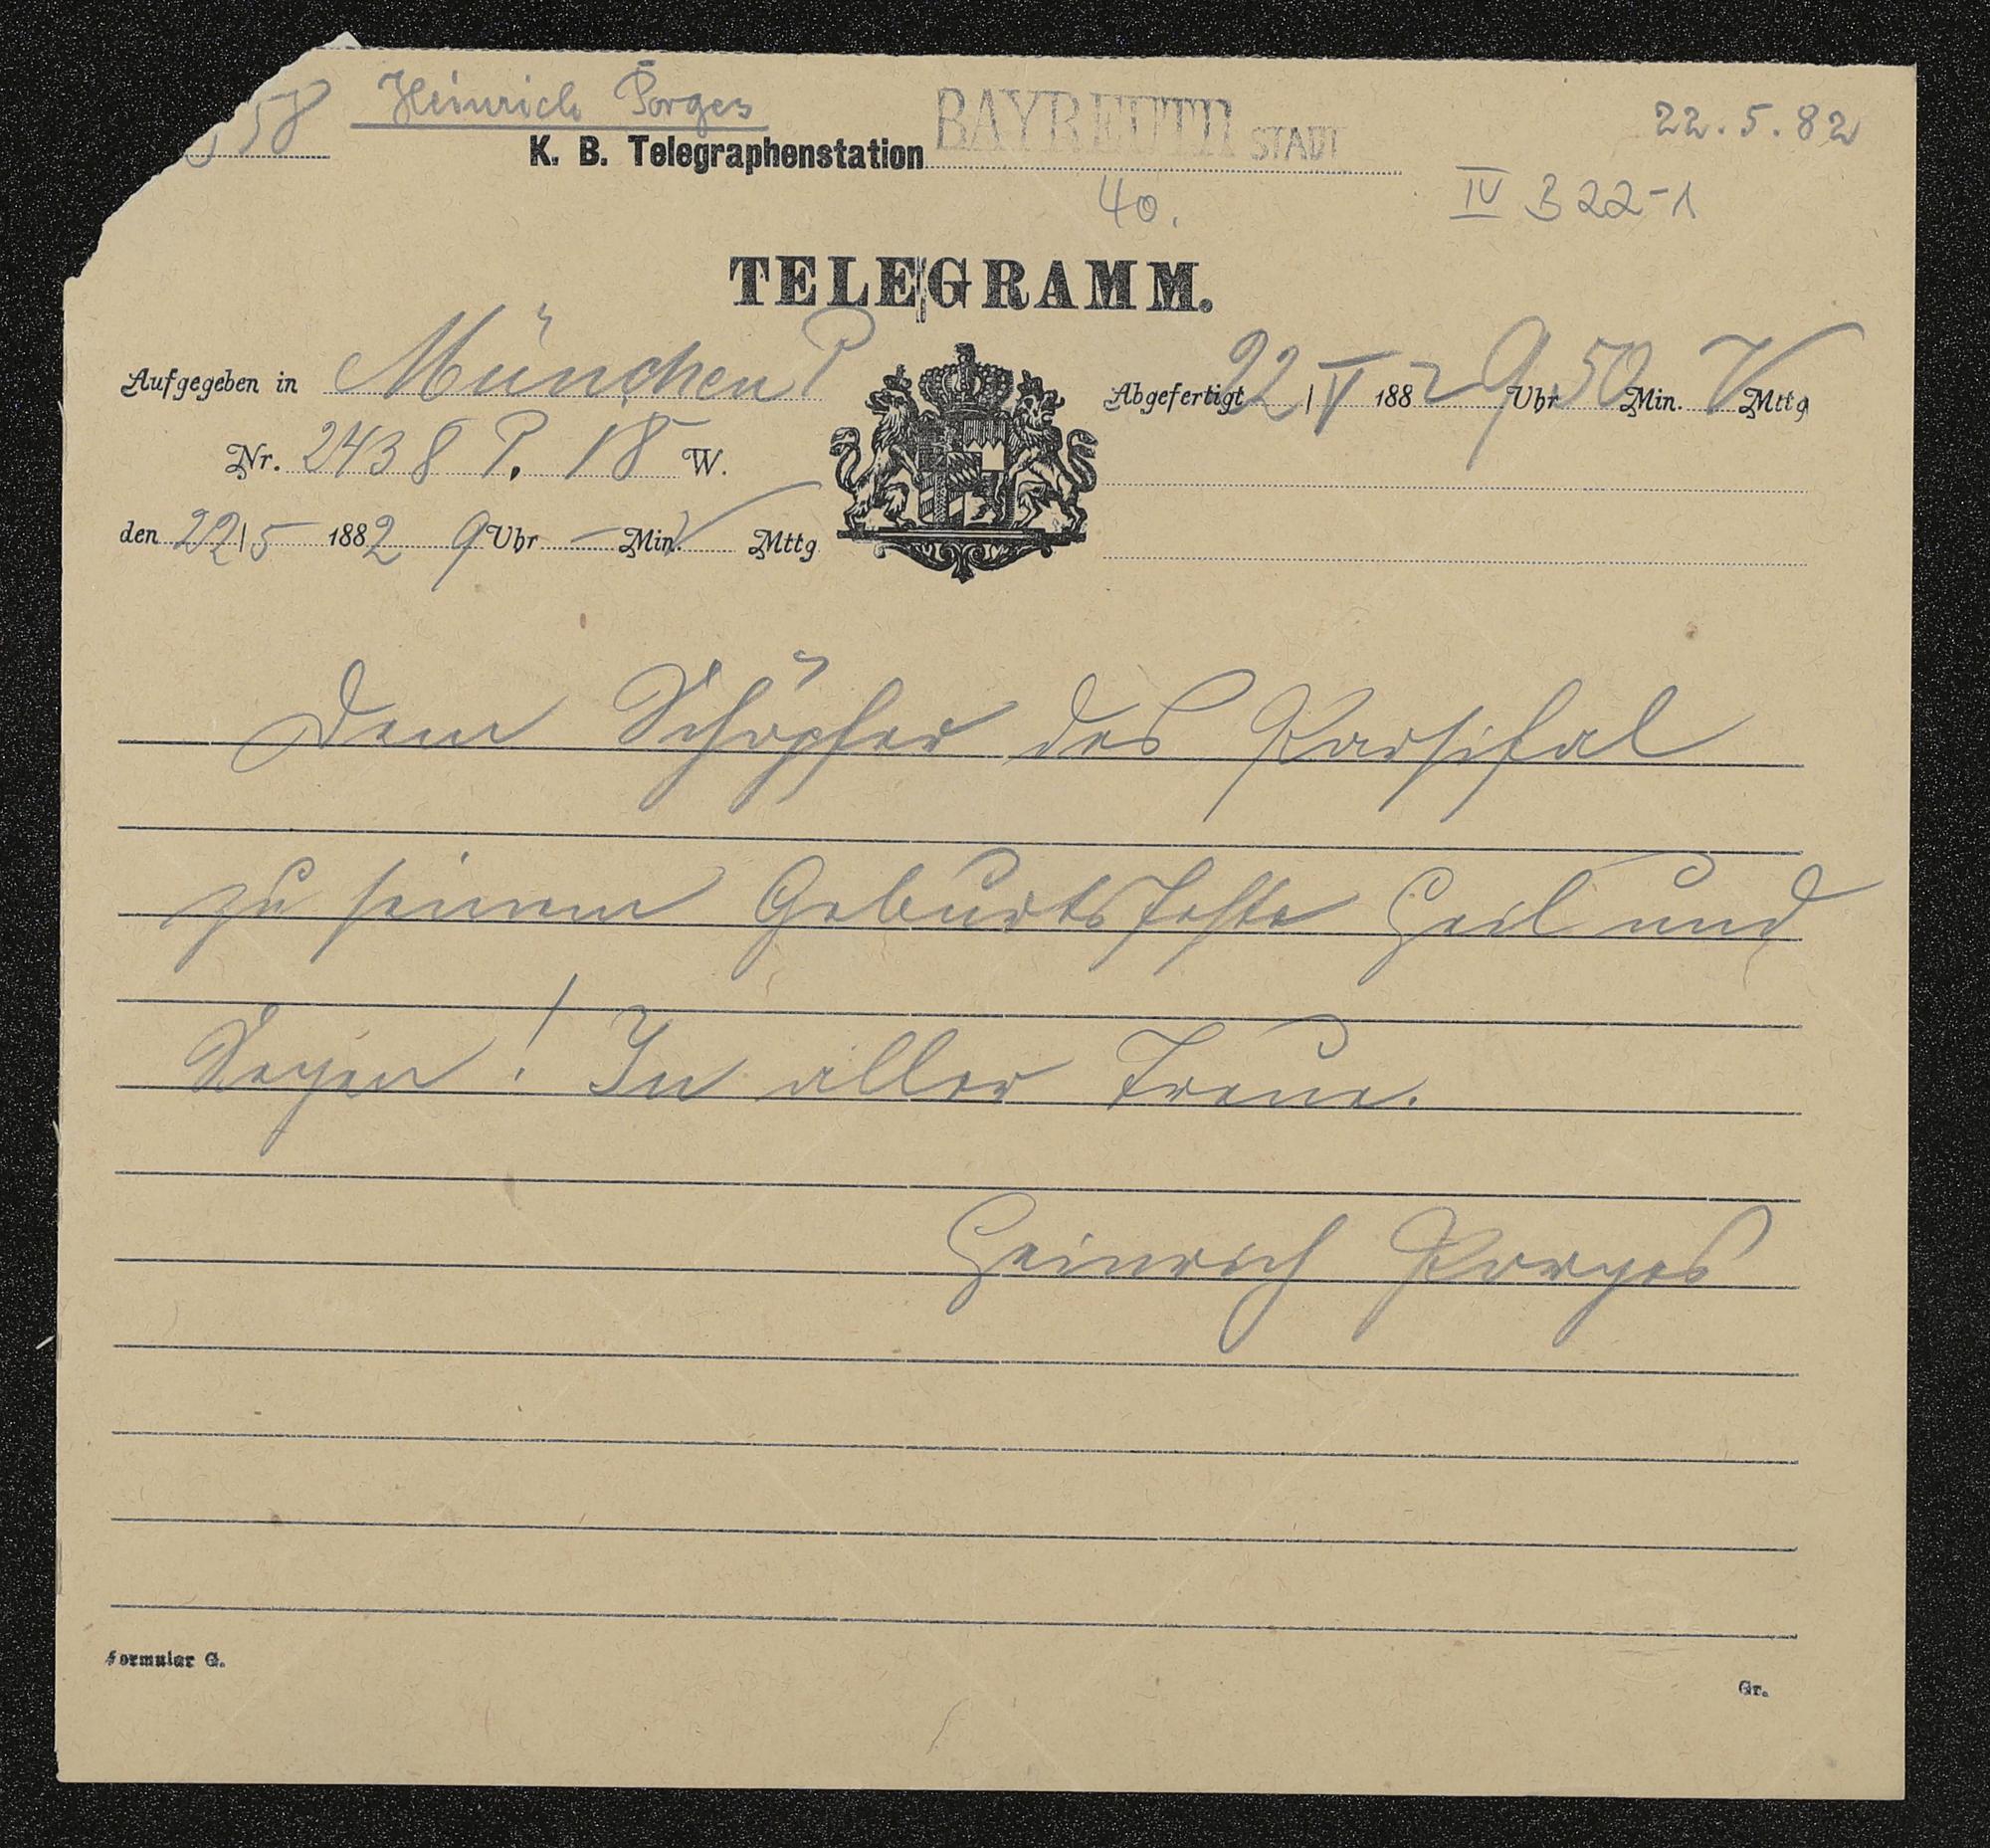 58 Heinrich Porges
22.5.82
K. B. Telegraphenstation BAYREUTH STADT
40.
IV B 22-1
TELEGRAMM.
Aufgegeben in München P
Abgefertigt 22 | V 1882 9 Uhr 50 Min. V Mttg
Nr. 2438 P. 18 W.
den 22|5 1882 9 Uhr – Min. V Mttg
Dem Schöpfer des Parsifal
zu seinem Geburtsfeste Heil und
Segen! In aller Treue.
Heinrich Porges
Formular G.
Gr.